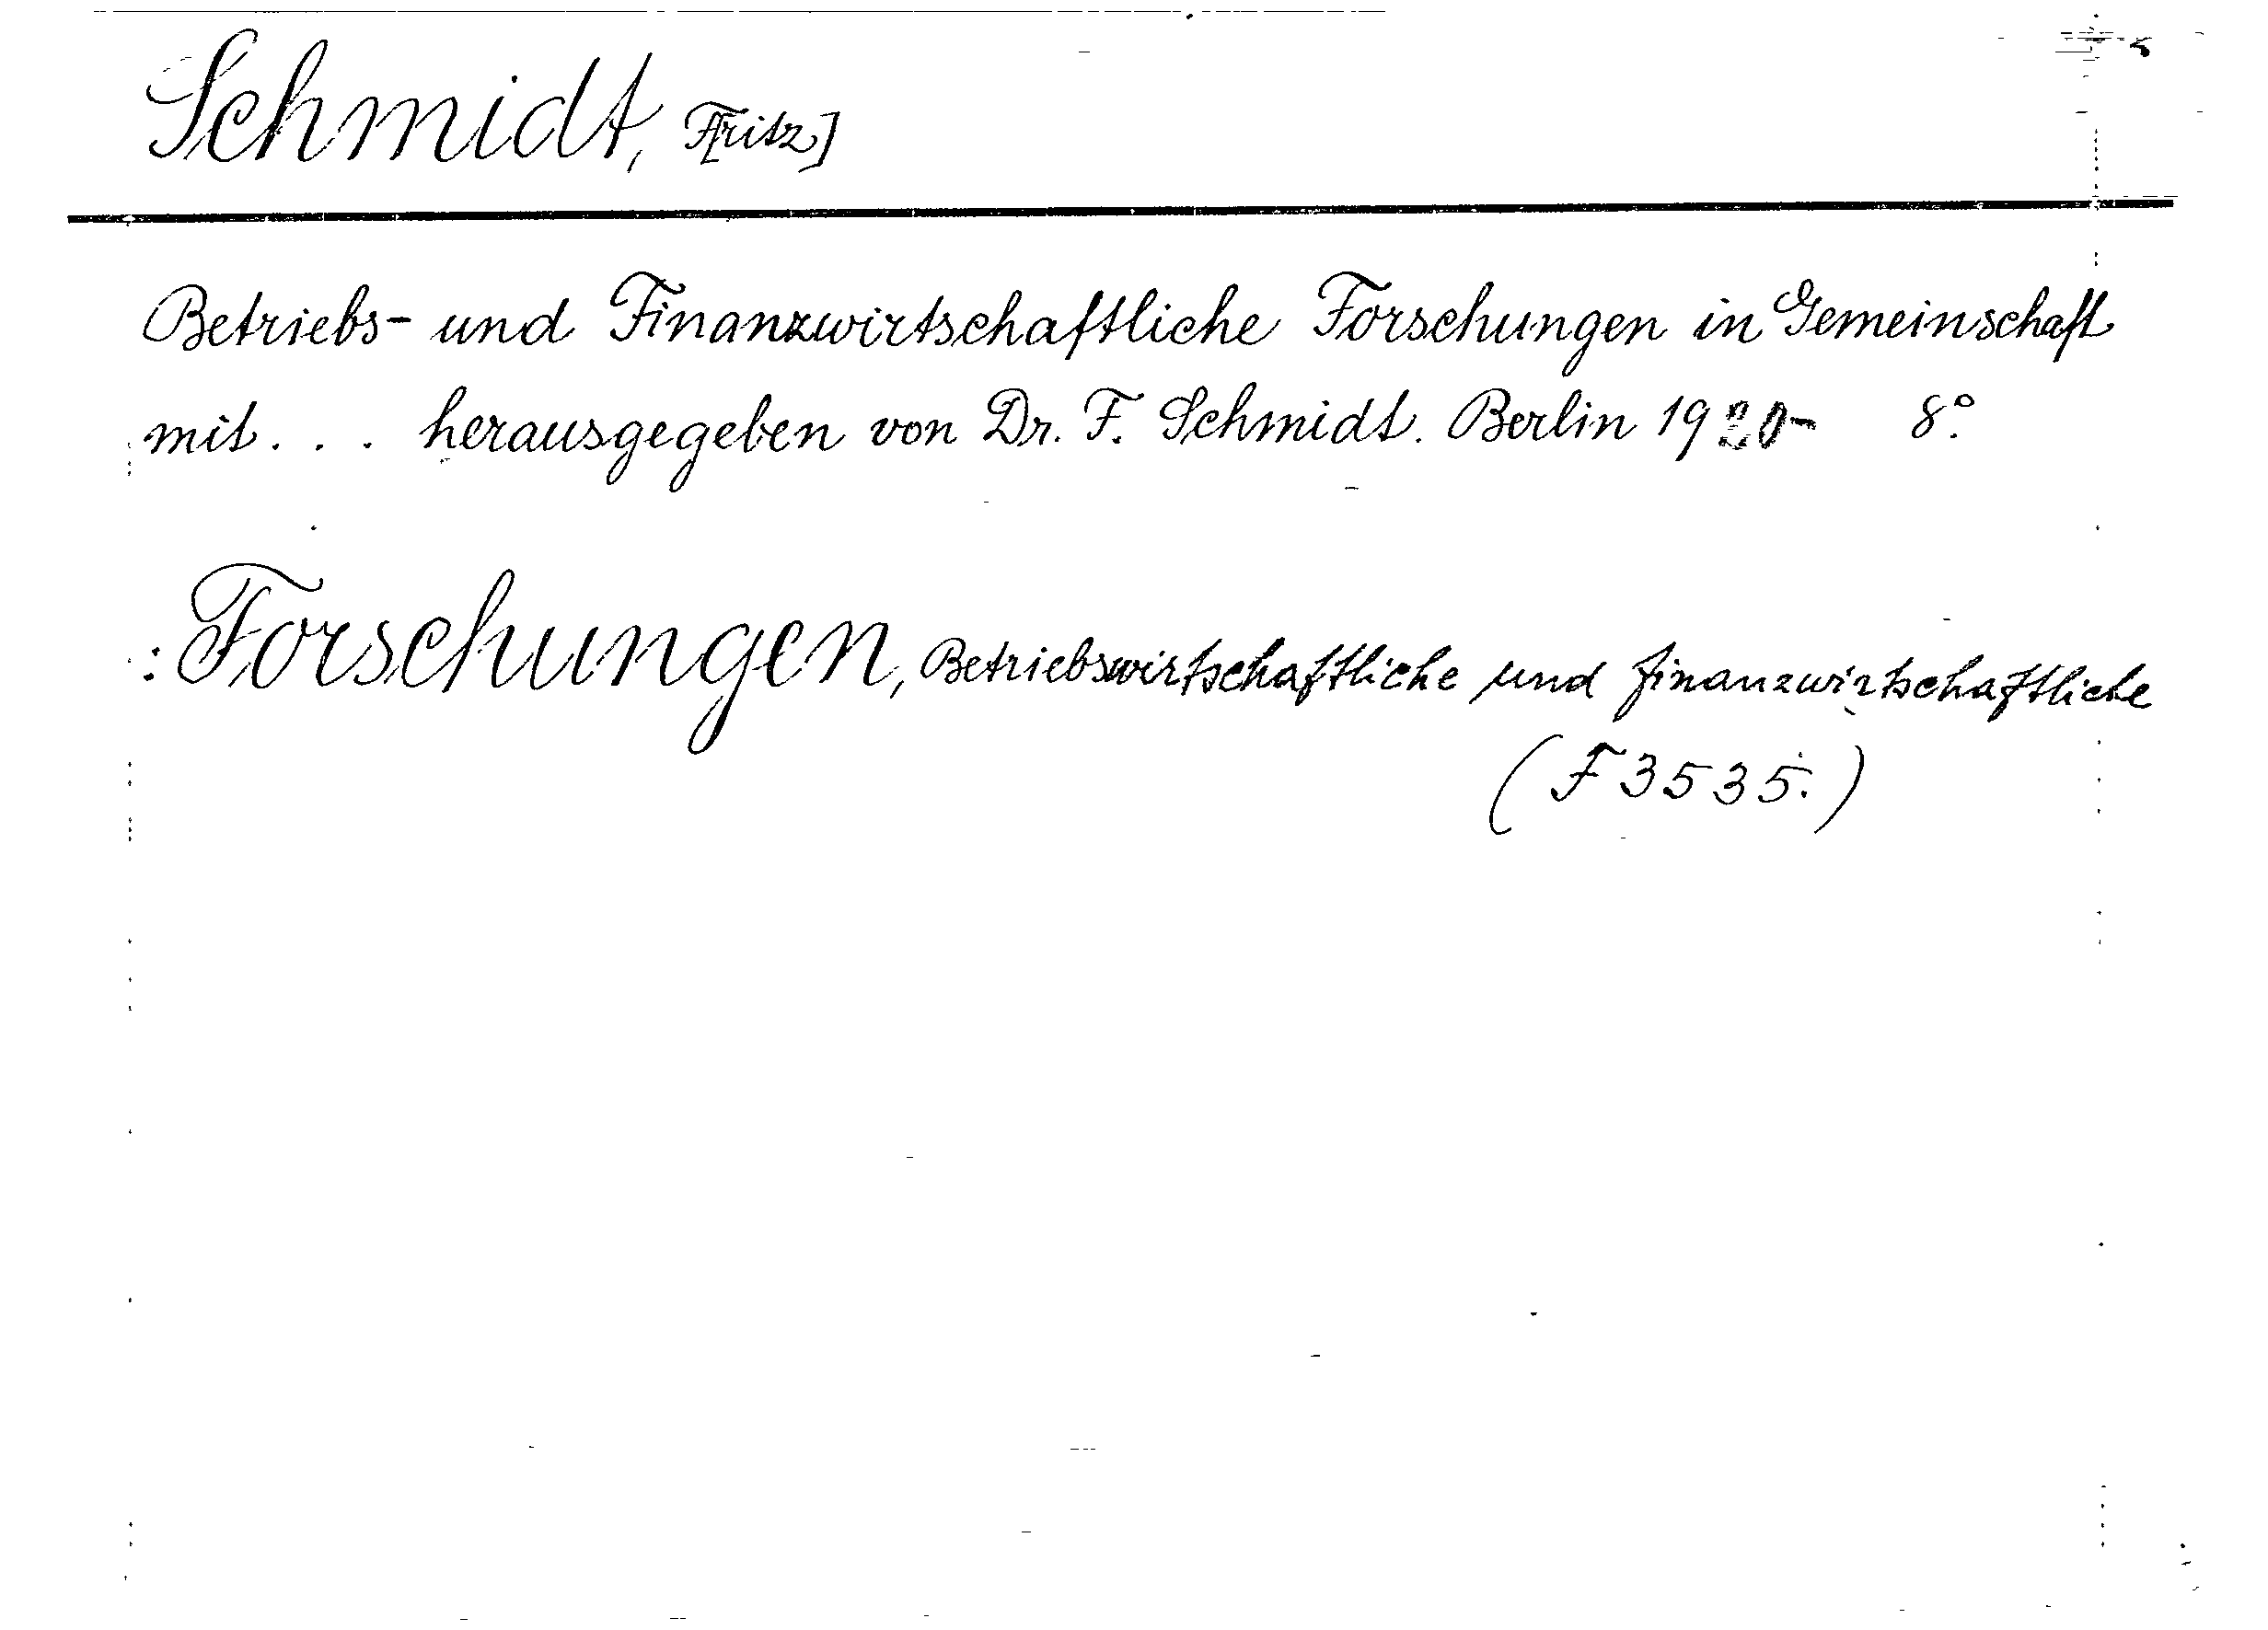 Schmidt, F[ritz]
Betriebs- und Finanzwirtschaftliche Forschungen in Gemeinschaft
mit. . . herausgegeben von Dr. F. Schmidt. Berlin 1920- 8°.
: Forschungen, Betriebswirtschaftliche und finanzwirtschaftliche
(F 3535.)